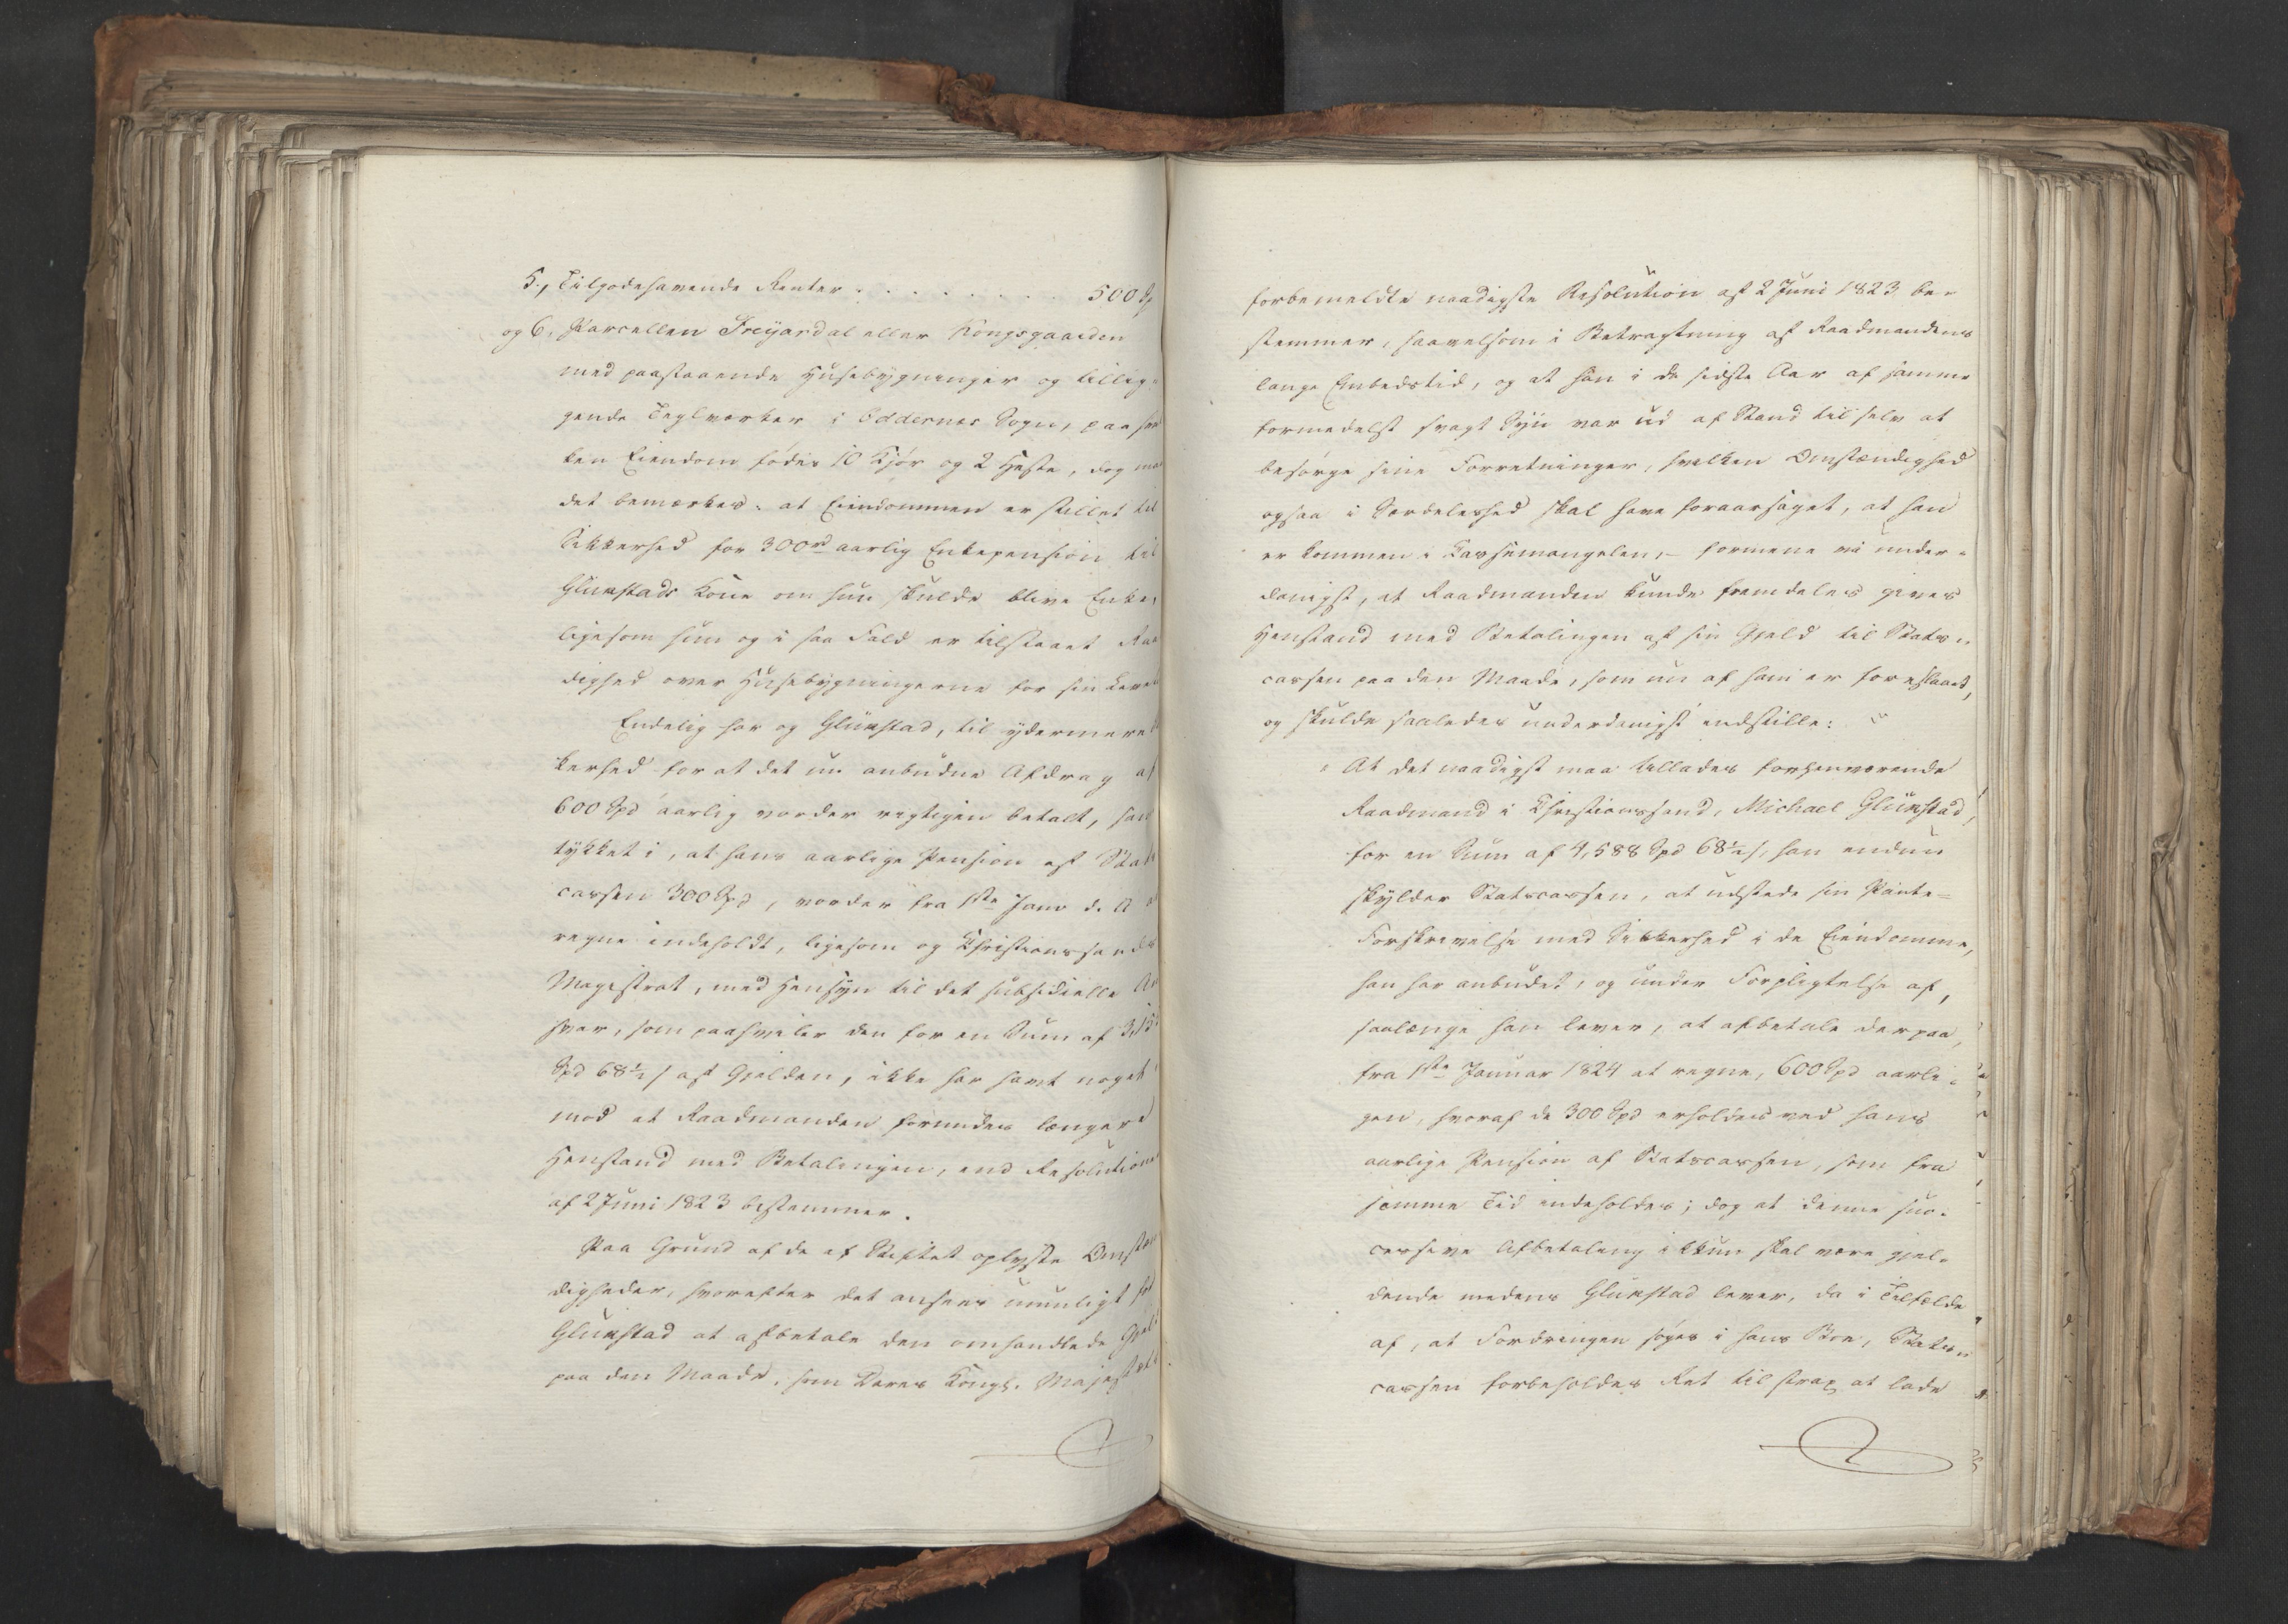 5., Tilgodehavende Renter . . . . . . . . . 500 Sp
og 6. Parcellen Freÿardal eller Kongsgaarden
med paastaaende Husebÿgninger og tillig-
gende Teglværker i Oddernes Sogn, paa hvil
ken Eiendom fødes 10 Kjør og 2 Heste, dog maa
det bemærkes: at Eiendommen er stillet til
Sikkerhed for 300 rd aarlig Enkepension til
Glückstads Kone om hun skulde blive Enke,
ligesom hun og i saa Fald er tilstaaet Raa
dighed over Husebÿgningerne for sin Leve
Endelig har og Glückstad, til ÿdermere
kerhed for at det nu anbudne Afdrag af
600 Spd aarlig vorder rigtigen betalt, sam
tÿkket i, at hans aarlige Pension af Stats
cassen 300 Spd, vorder fra 1ste Janr d. A. at
regne indeholdt, ligesom og Christianssands
Magistrat, med Hensÿn til det subsidielle An
svar, som paahviler den for en Sum af 3,15
Spd 68½ s af Gjelden, ikke har havt noget
mod at Raadmanden forundes længere
Henstand med Betalingen, end Resolutionen
af 2 Juni 1823 bestemmer.
Paa Grund af de af Stiftet oplyste Omstæn
digheder, hvorefter det ansees umuligt for
Glückstad at afbetale den omhandlede Gjeld
paa den Maade, som Deres Kongl. Majestæts
forbemeldte naadigste Resolution af 2 Juni 1823 be-
stemmer, saavelsom i Betragtning af Raadmandens
lange Embedstid, og at han i de sidste Aar af samme
formedelst svagt Sÿn var ud af Stand til selv at
besørge sine Forretninger, hvilken Omstændighed
ogsaa i Særdeleshed skal have foraarsaget, at han
er kommen i Cassemangelen, – formene vi under-
danigst, at Raadmanden kunde fremdeles gives
Henstand med Betalingen af sin Gjeld til Stats-
cassen paa den Maade, som nu af ham er foreslaaet,
og skulde saaledes underdanigst indstille:
At det naadigst maa tillades forhenværende
Raadmand i Christianssand, Michael Glückstad,
for en Sum af 4,588 Spd 68½ s, han endnu
skÿlder Statscassen, at udstede sin Pante-
Forskrivelse med Sikkerhed i de Eiendomme,
han har anbudet, og under Forpligtelse af,
saalænge han lever, at afbetale derpaa,
fra 1ste Januar 1824 at regne, 600 Spd aarli-
gen, hvoraf de 300 Spd erholdes ved hans
aarlige Pension af Statscassen, som fra
samme Tid indeholdes; dog at denne suc-
cessive Afbetaling ikkun skal være gjel-
dende medens Glückstad lever, da i Tilfælde
af, at Fordringen søges i hans Boe, Stats-
cassen forbeholdes Ret til strax at lade